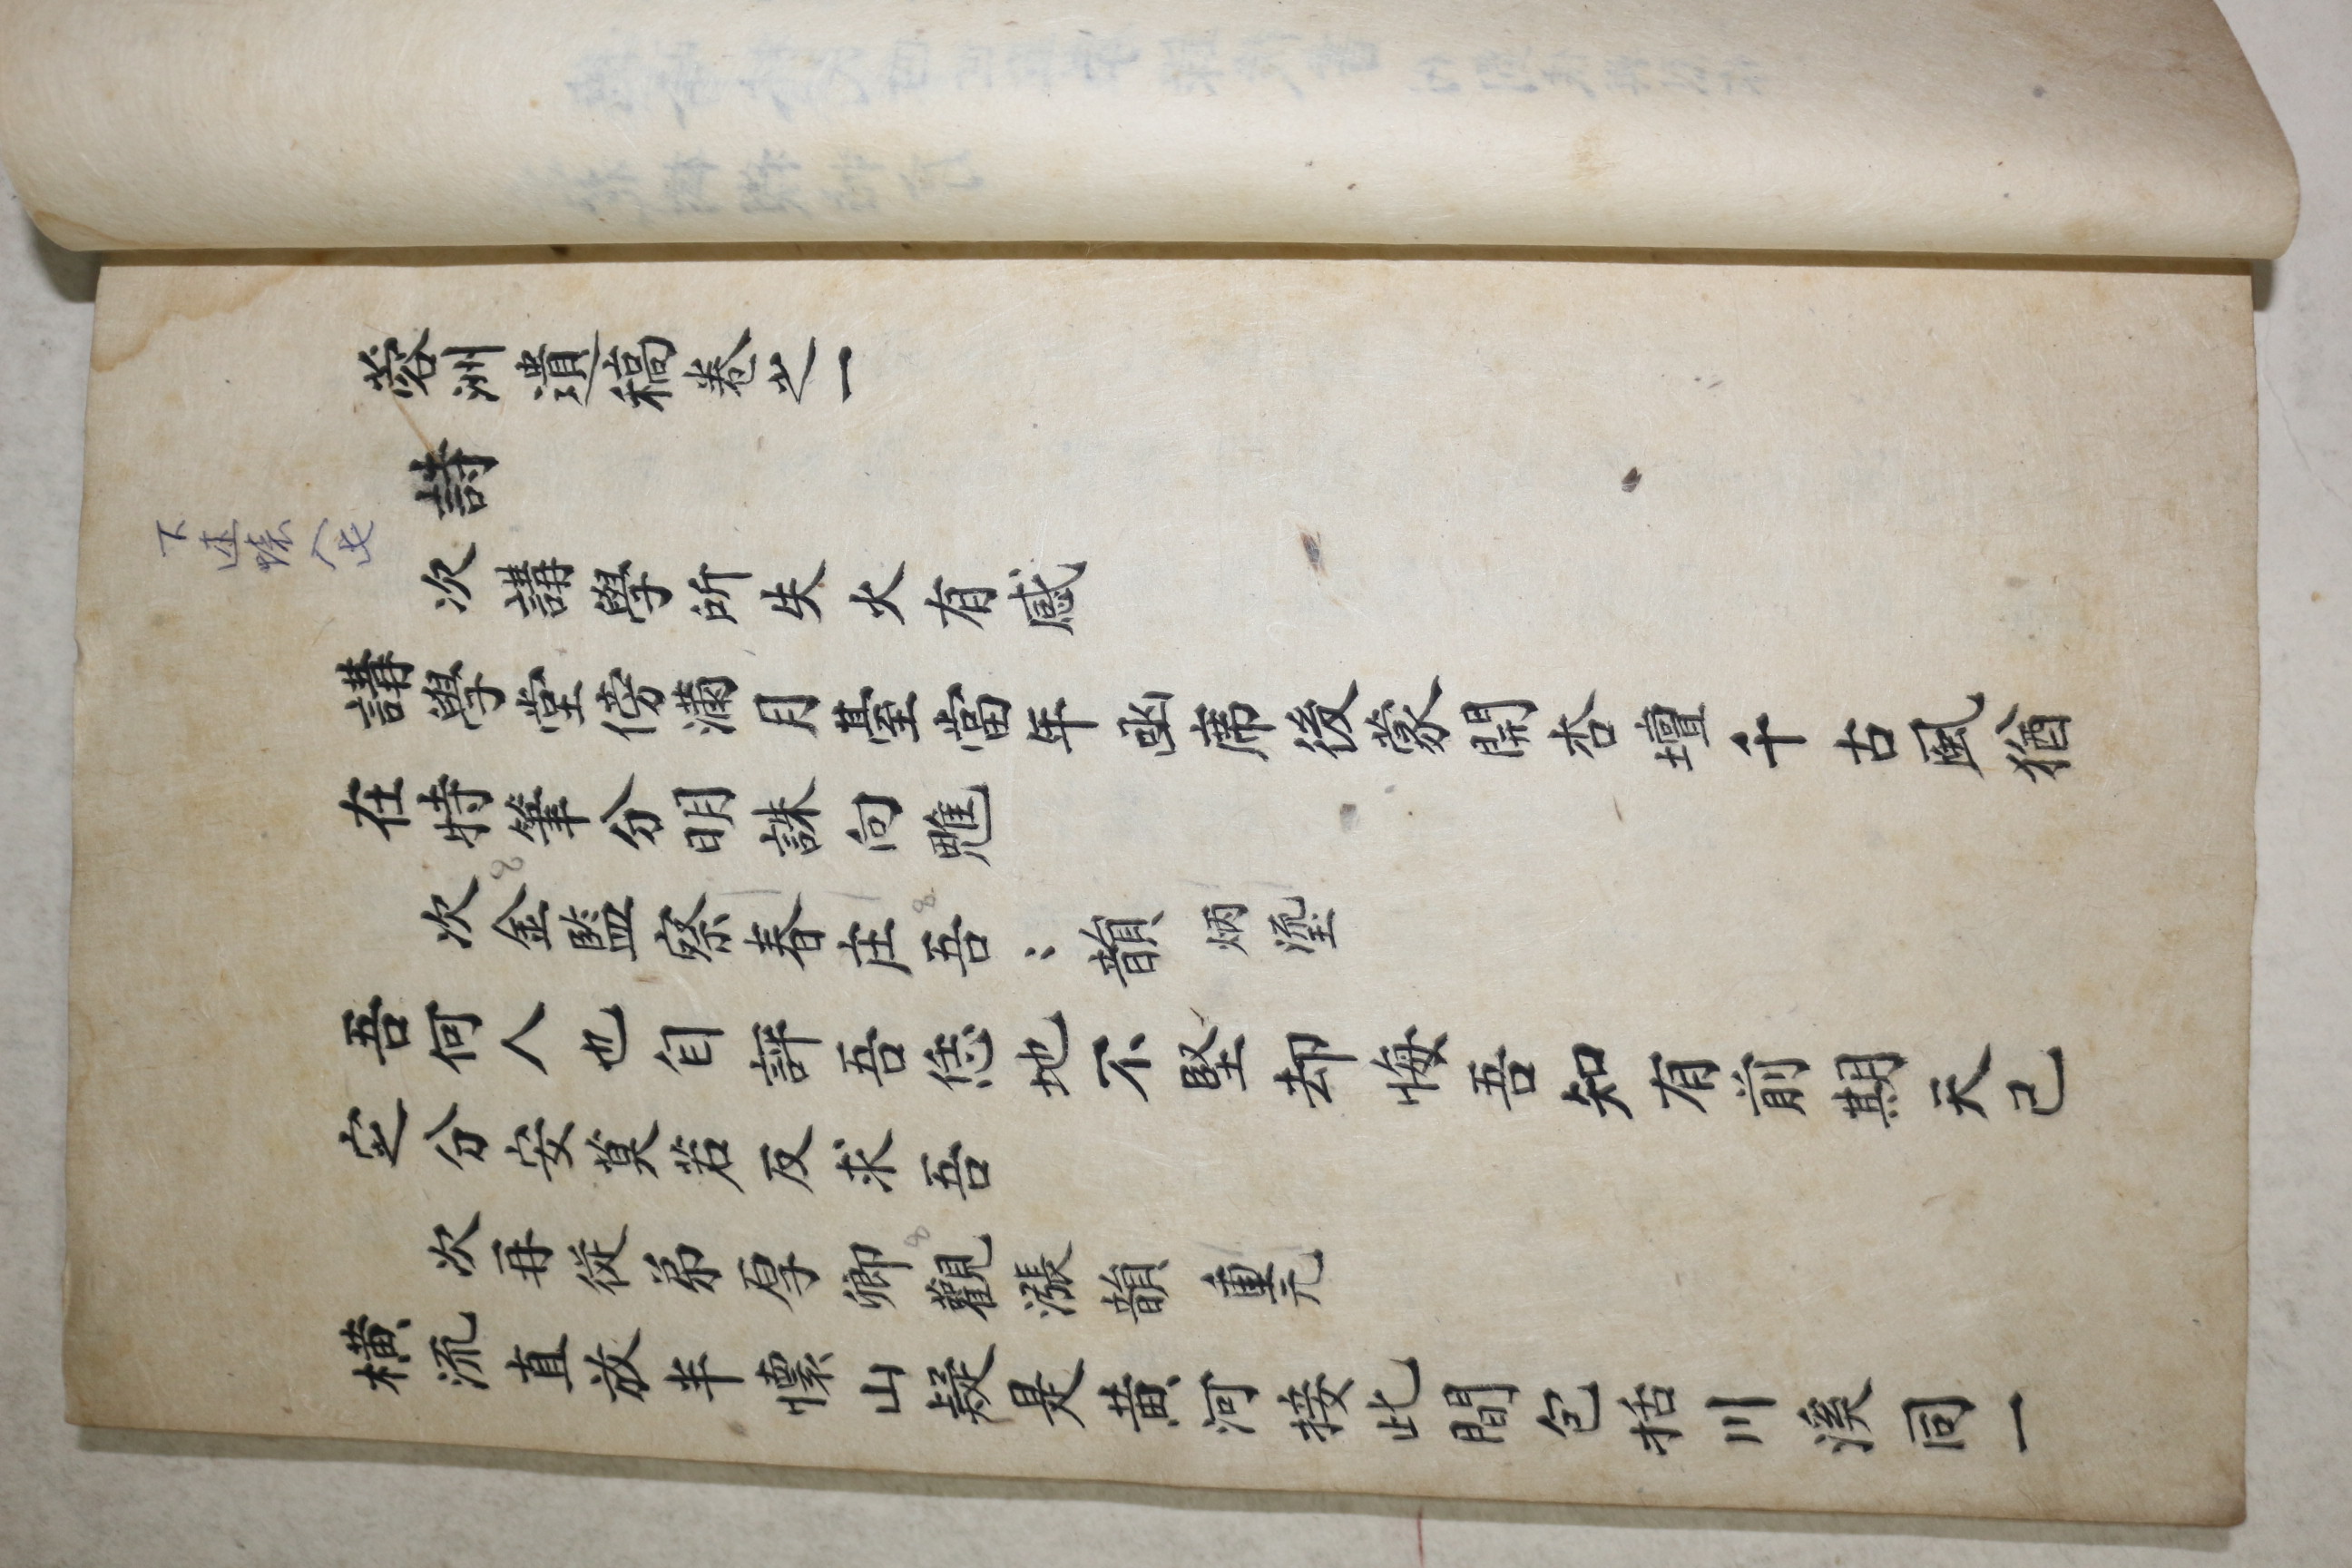 蓉州遺稿卷之一
詩
次講學所失火有感
講學堂傍滿月臺當年函席後蒙開杏壇千古風猶
在特筆分明誅向魋
次金監察春庄吾〻韻 炳瀅
吾何人也自評吾恁地不堅却悔吾知有前期天已
定分安莫若反求吾
次再從弟厚卿觀漲韻 重元
橫流直放半懷山疑是黃河接此間包括川溪同一